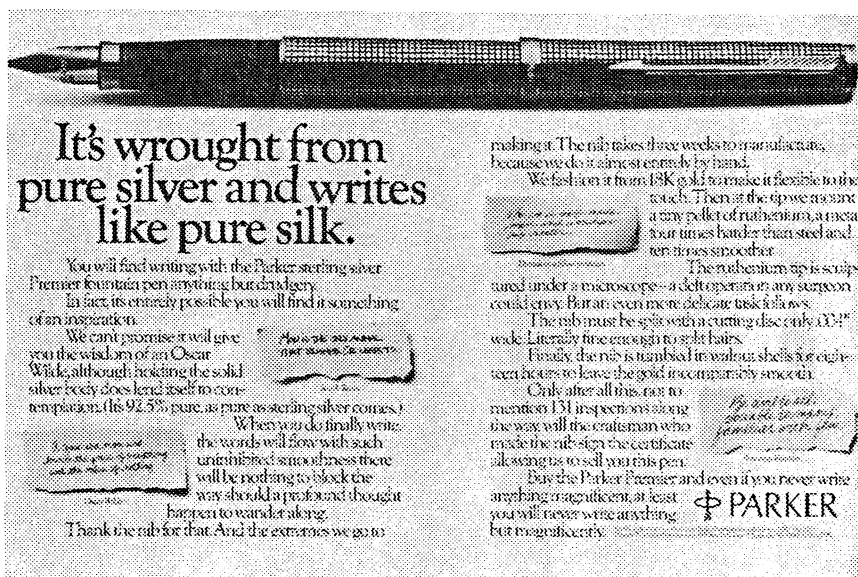 It's wrought from
pure silver and writes
like pure silk.
You will find writing with the Parker sterling silver
Premier fountain pen anything but drudgery.
In fact, its entirely possible you will find it something
of an inspiration.
We can't promise it will give
you the wisdom of an Oscar
Wilde, although holding the solid
silver body does lend itself to con-
templation. (It's 92.5% pure, as pure as sterling silver comes.)
When you do finally write,
the words will flow with such
uninhibited smoothness there
will be nothing to block the
way should a profound thought
happen to wander along.
Thank the nib for that. And the extremes we go to
making it. The nib takes three weeks to manufacture,
because we do it almost entirely by hand.
We fashion it from 18K gold to make it flexible to the
touch. Then at the tip we mount
a tiny pellet of ruthenium, a metal
four times harder than steel and
ten times smoother.
The ruthenium tip is sculp-
tured under a microscope – a deft operation any surgeon
could envy. But an even more delicate task follows.
The nib must be split with a cutting disc only .004"
wide. Literally fine enough to split hairs.
Finally, the nib is tumbled in walnut shells for eigh-
teen hours to leave the gold incomparably smooth.
Only after all this, not to
mention 131 inspections along
the way, will the craftsman who
made the nib sign the certificate
allowing us to sell you this pen.
Buy the Parker Premier and even if you never write
anything magnificent, at least
you will never write anything
but magnificently.
PARKER